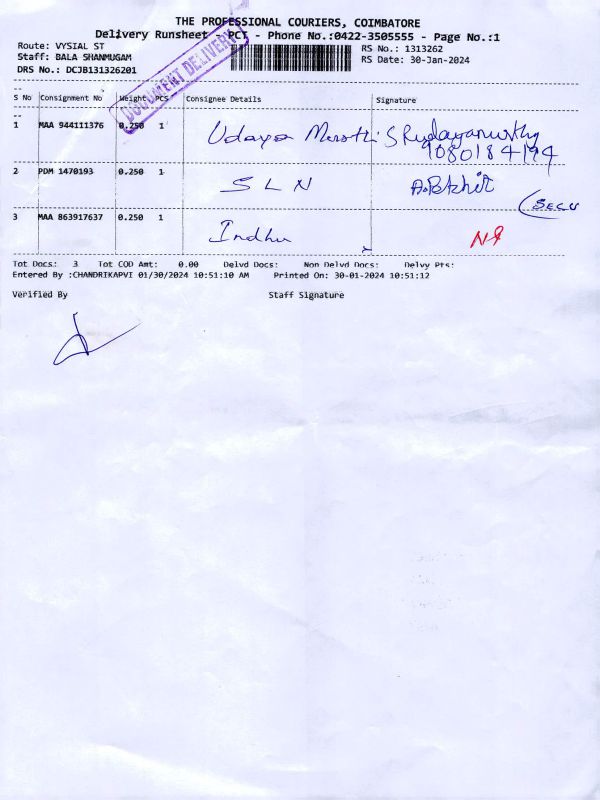 THE PROFESSIONAL COURIERS, COIMBATORE
Delivery Runsheet - PCT - Phone No.:0422-3505555 - Page No.:1
Route: VYSIAL ST
Staff: BALA SHANMUGAM
DRS No.: DCJB131326201
RS No.: 1313262
RS Date: 30-Jan-2024
DOCUMENT DELIVERY
S No Consignment No Weight PCS Consignee Details Signature
1 MAA 944111376 0.250 1 Udaya
9080184194
2 PDM 1470193 0.250 1 S L N
SECU
3 MAA 863917637 0.250 1 Indhu
Tot Docs: 3 Tot COD Amt: 0.00 Delvd Docs: Non Delvd Docs: Delvy Pts:
Entered By :CHANDRIKAPVI 01/30/2024 10:51:10 AM Printed On: 30-01-2024 10:51:12
Verified By Staff Signature